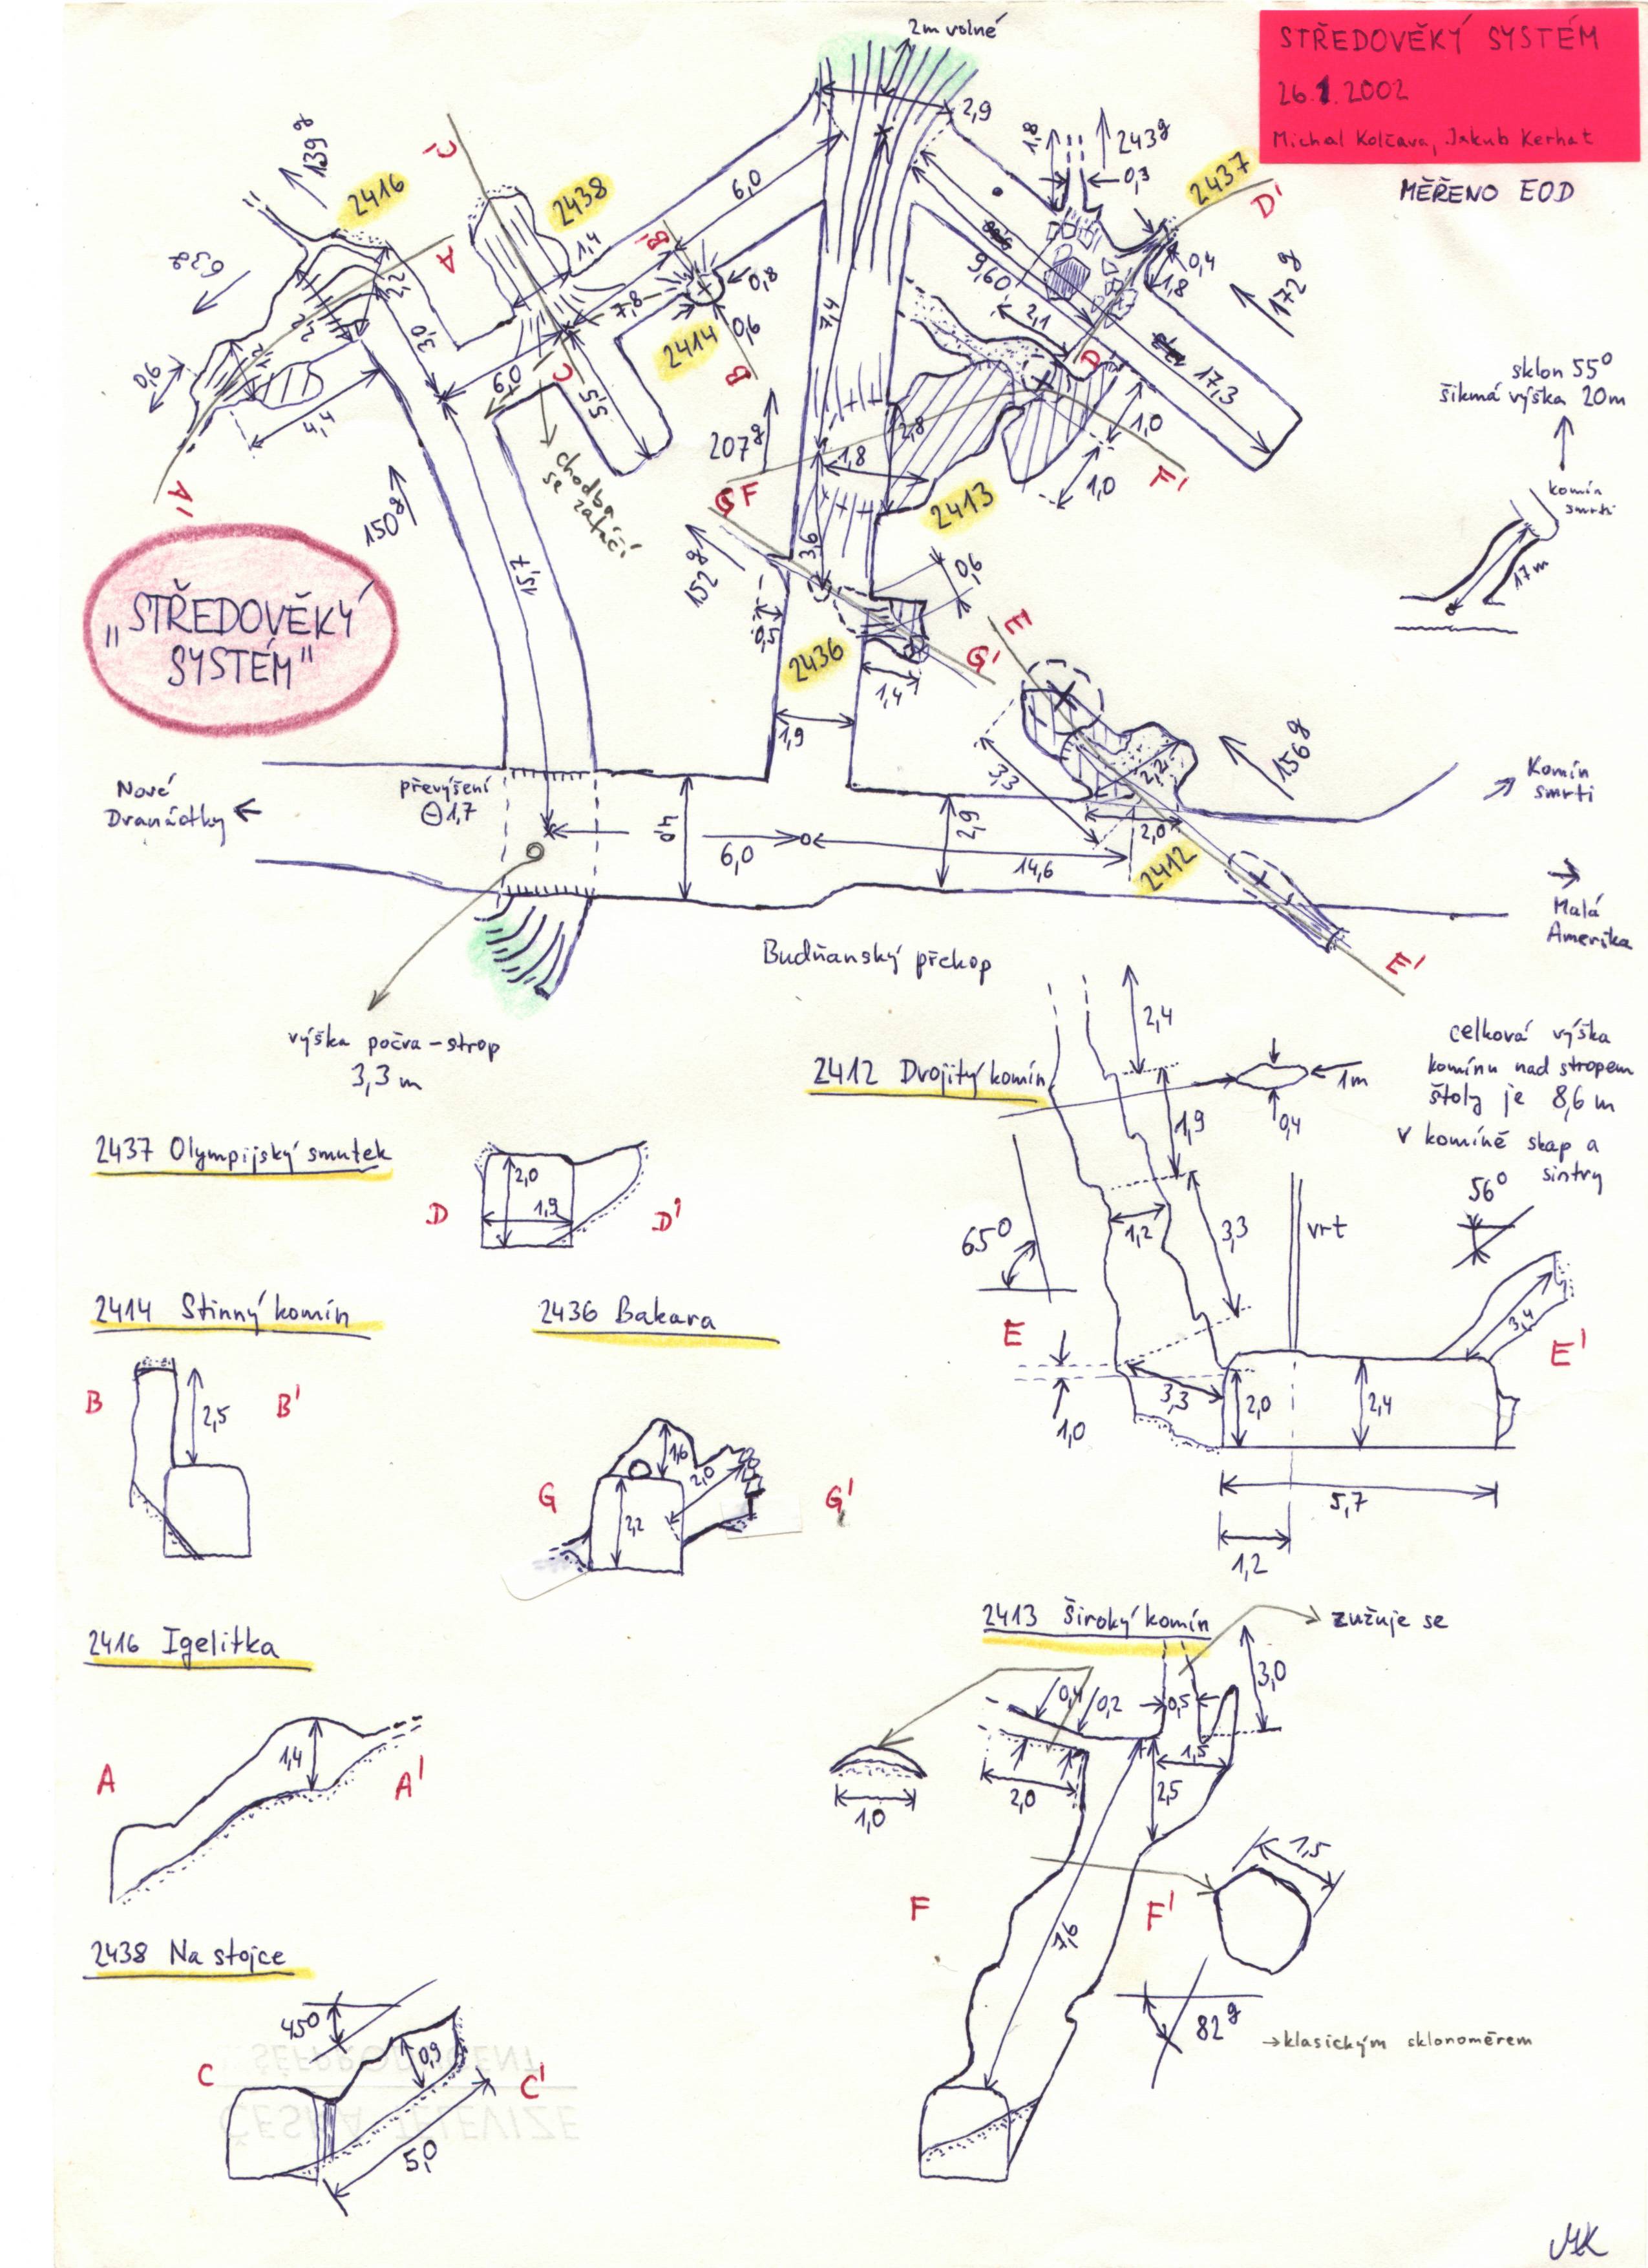 2m volné
STŘEDOVĚKÝ SYSTÉM
26.1.2002
Michal Kolčava, Jakub Kerhat
MĚŘENO EOD
2,9
1,8
243g
0,3
2437
D'
139g
2416
A
C'
2438
1,4
6,0
B'
0,8
7,8
0,6
2414
B
2,2
3,0
0,6
4,4
A'
6,0
C
5,5
chodba
se zatáčí
7,4
9,60
2,1
D
0,4
1,8
172g
17,3
207g
2,8
1,8
F
G
2413
1,0
1,0
F'
sklon 55°
šikmá výška 20m
komín
smrti
17m
150g
15,7
3,6
152g
0,5
0,6
2436
G'
1,4
1,9
E
„STŘEDOVĚKÝ
SYSTÉM"
3,3
2,2
156g
2,0
2412
E'
Nové
Dranáčky
převýšení
⊖1,7
6,0
2,9
14,6
Komín
smrti
Malá
Amerika
Budňanský překop
výška počva – strop
3,3 m
2412 Dvojitý komín
2,4
1m
0,4
1,9
celková výška
komínu nad stropem
štoly je 8,6 m
v komíně skap a
sintry
65°
1,2
3,3
vrt
56°
3,4
E
E'
1,0
3,3
2,0
2,4
5,7
1,2
2437 Olympijský smutek
D
2,0
1,9
D'
2414 Stinný komín
B
2,5
B'
2436 Bakara
G
1,6
2,0
2,2
G'
2416 Igelitka
A
1,4
A'
2413 Široký komín
zužuje se
3,0
0,4
0,2
0,5
1,5
2,5
2,0
1,0
7,6
1,5
F
F'
82g
→klasickým sklonoměrem
2438 Na stojce
45°
C
0,9
C'
5,0
ŠÉFPRODUCENT
ČESKÁ TELEVIZE
MK